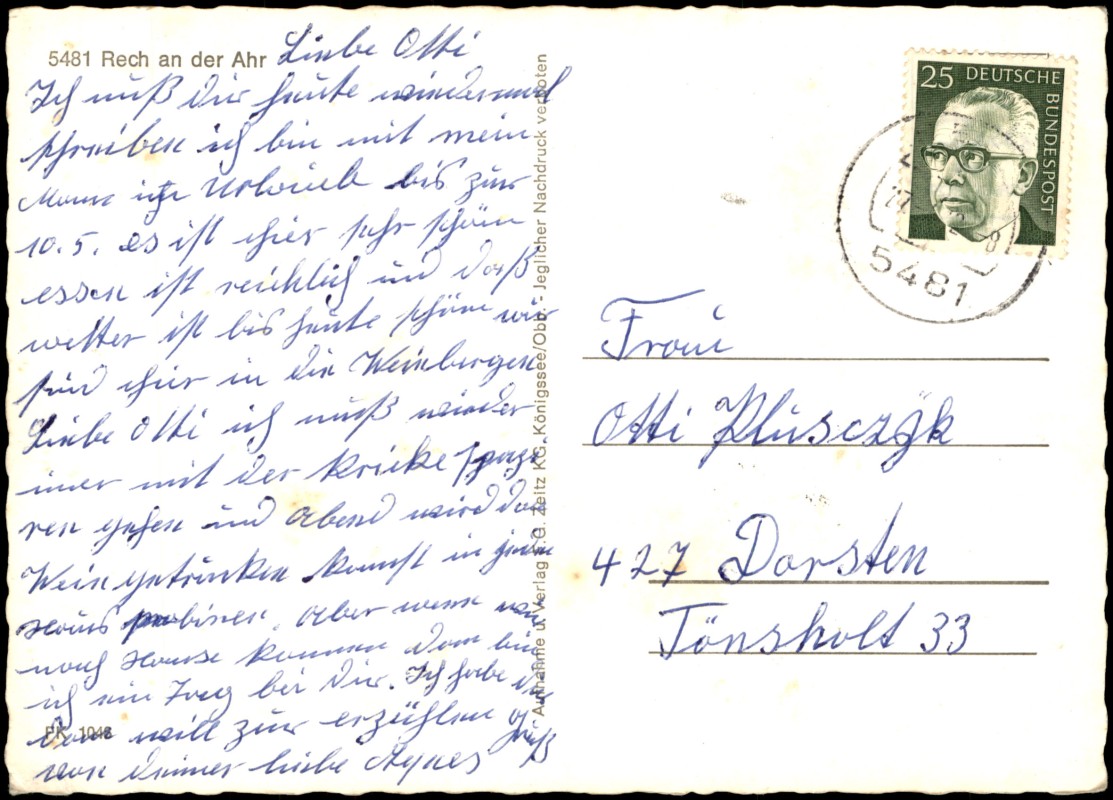 5481 Rech an der Ahr
Liebe Otti
Ich muß dir heute wiedermal
schreiben ich bin mit mein
Mann Urlaub bis zur
10.5. es ist hier sehr schön
essen ist reichlich und daß
wetter ist bis heute schön wir
sind hier in die Weinbergen
Liebe Otti ich muß wieder
imer mit der kricke spazi
ren gehen und Abend wird dan
Wein getrunken kannst in jeden
Haus probiren. Aber wenn wir
nach Hause kommen dan bin
ich ein Tag bei Dir. Ich habe dir
dan will zur erzühlen Gruß
von deiner liebe Agnes
PK 1048
Aufnahme u. Verlag H.G. Zeitz KG, Königssee/Obb. - Jeglicher Nachdruck verboten
25 DEUTSCHE
BUNDESPOST
5481
Frau
Otti Klusczyk
427 Dorsten
Tönsholt 33